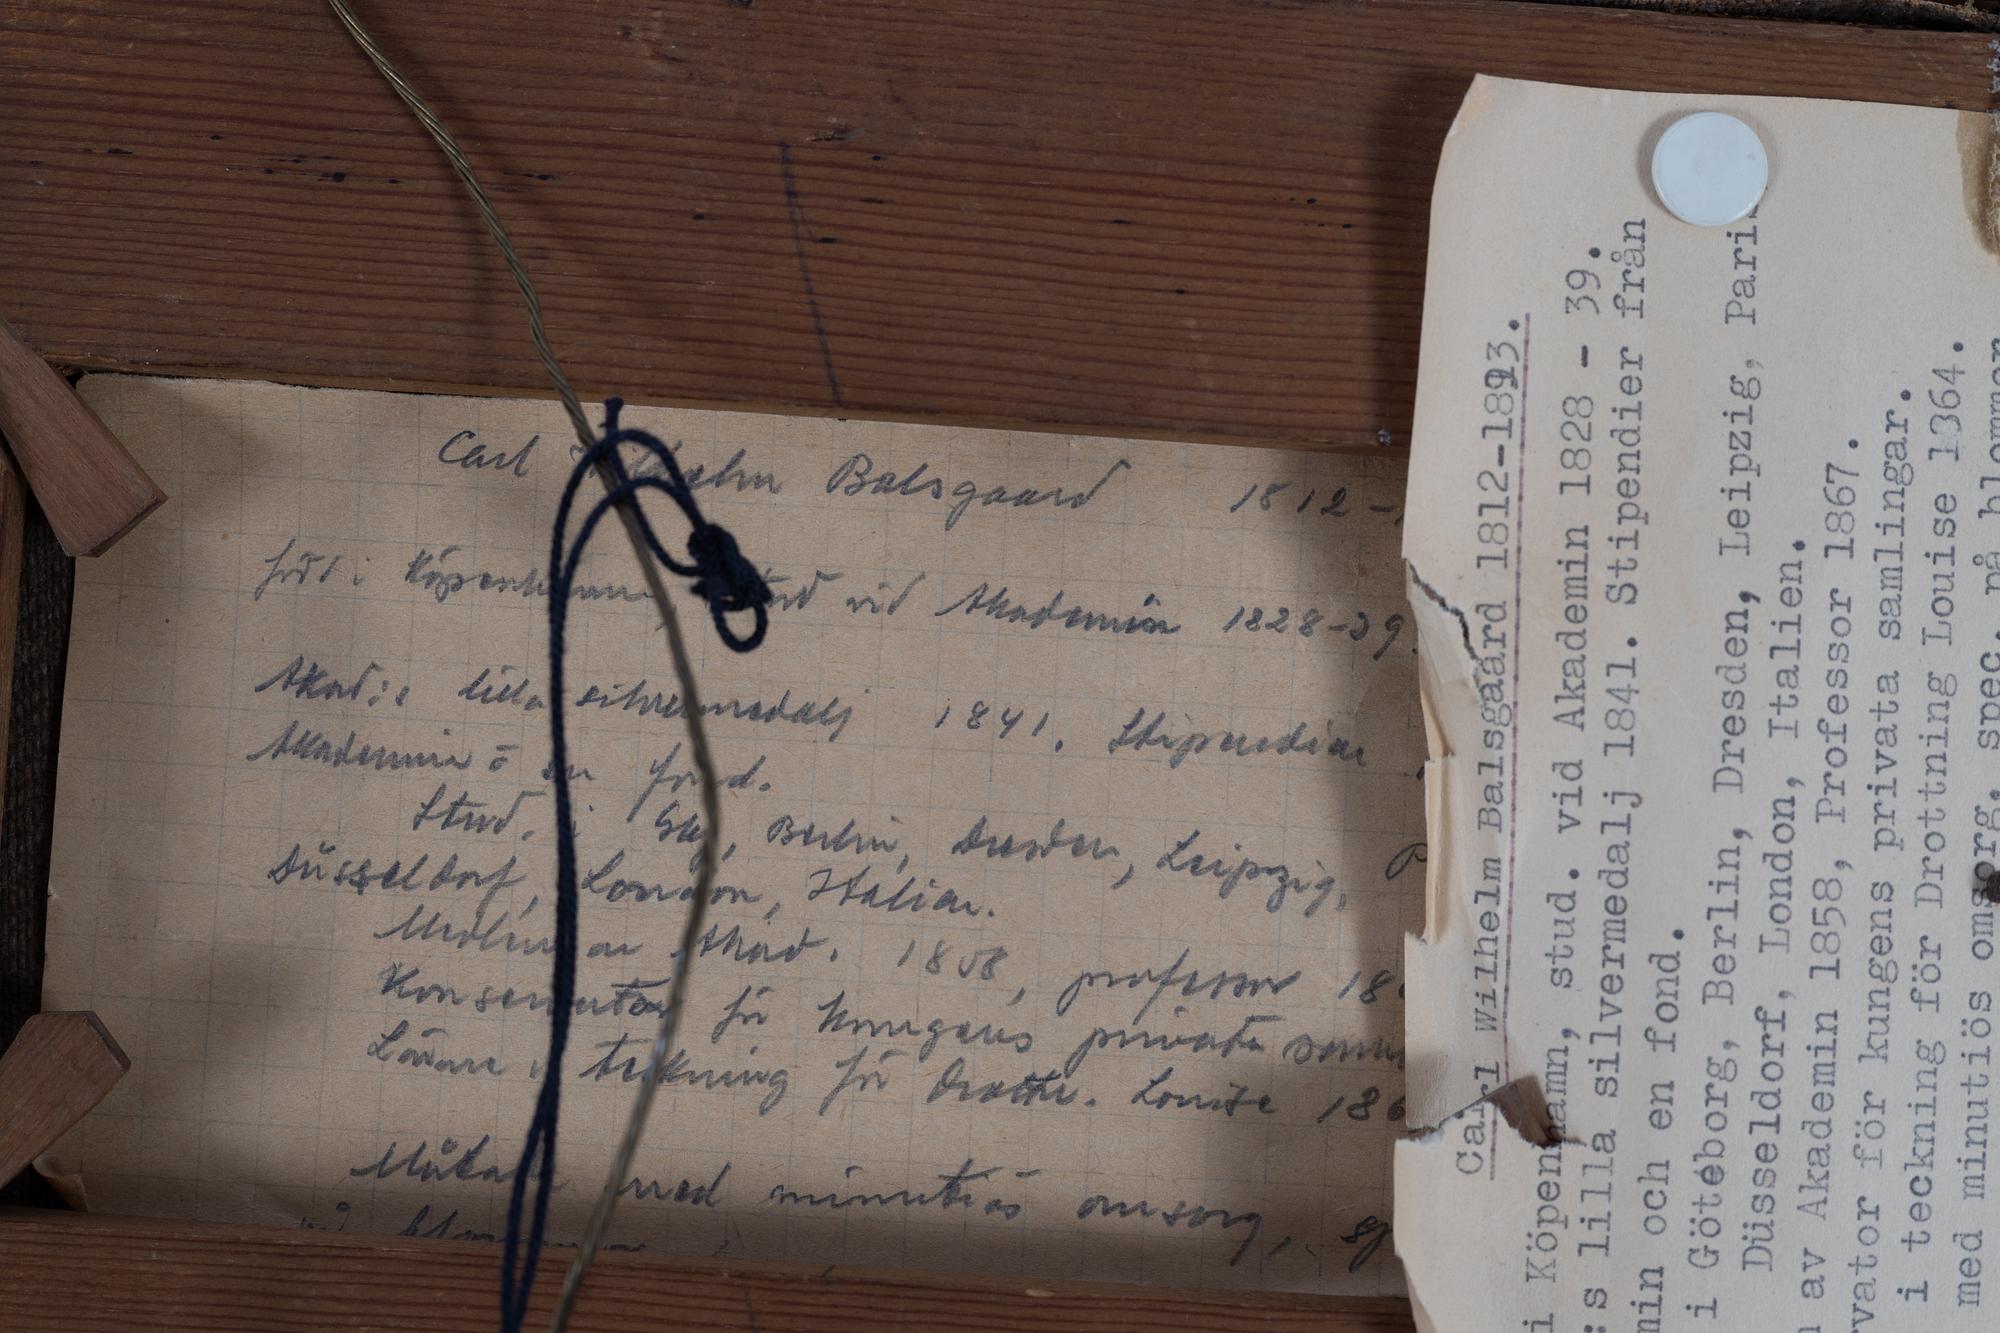 Carl Balsgaard 1812-
född i vid Akademin 1828-39.
Akad:s lilla silvermedalj 1841. Stipendier
Akademin o en fond.
Stud. i Gbg, Berlin, Dresden, Leipzig, P
Düsseldorf, London, Italien.
Medlem av Akad. 1858, professor 18
Konservator för kungens privata saml
Lärare i teckning för Drottn. Louise 186
Målade med minutiös omsorg, sp
på blommor,
Carl Wilhelm Balsgaard 1812-1893.
i Köpenhamn, stud. vid Akademin 1828 - 39.
:s lilla silvermedalj 1841. Stipendier från
min och en fond.
i Göteborg, Berlin, Dresden, Leipzig, Paris
Düsseldorf, London, Italien.
av Akademin 1858, Professor 1867.
vator för kungens privata samlingar.
i teckning för Drottning Louise 1864.
med minutiös omsorg, spec. på blommor